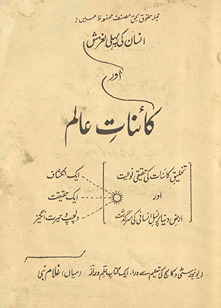 جملہ حقوق بحق مصنف محفوظ ھیں!
انسان کی پہلی لغزش
اور
کائناتِ عالم
تخلیق کائنات کی حقیقی نوعیت
اور
ارض دنیا پر نسل انسانی کی سرگزشت
ایک انکشاف
ایک حقیقت
دلچسپ و حیرت انگیز
یونیورسٹی و کالج کی تعلیم سے ورا، ایک کتاب
(میاں) غلام نبی